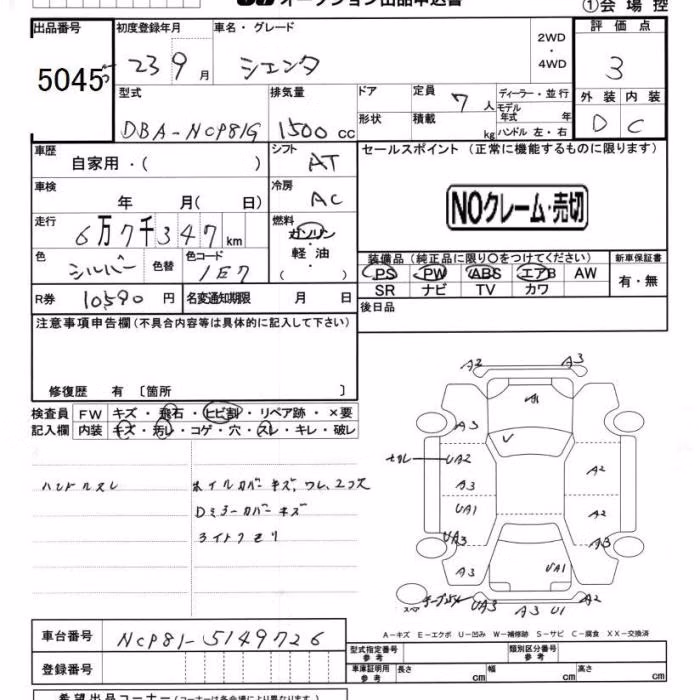 オークション出品申込書
①会場控
出品番号 初度登録年月 車名・グレード 評価点
5045 23 9月 シエンタ 2WD・4WD 3
型式 排気量 ドア 定員 7人 ディーラー・並行 外装 内装
DBA-NCP81G 1500cc 形状 積載 kg モデル年式 年 ハンドル 左・右 D C
車歴 自家用・( ) シフト AT セールスポイント(正常に機能するものに限ります)
車検 年 月( 日) 冷房 AC NOクレーム・売切
走行 6万7千347km 燃料 ガソリン 軽油 ( )
色 シルバー 色替 色コード 1E7 装備品(純正品に限り○をつけてください) 新車保証書
PS PW ABS エアB AW 有・無
R券 10590円 名変通知期限 月 日 SR ナビ TV カワ
後日品
注意事項申告欄(不具合内容等は具体的に記入して下さい)
修復歴 有 〔箇所 〕
検査員 FW キズ・飛石・ヒビ割・リペア跡・×要
記入欄 内装 キズ・汚レ・コゲ・穴・スレ・キレ・破レ
ハンドルスレ ホイルカバーキズ、ワレ、2ヶ欠
Dミラーカバーキズ
ライトクモリ
A2 A3
A3
UA2 A2
A3
UA1 A2
UA3 A3
A3 UA1
スペア UA3 A3 U1 A2
A-キズ E-エクボ U-凹み W-補修跡 S-サビ C-腐食 XX-交換済
車台番号 NCP81-5149726 型式指定番号 参考 類別区分番号 参考
登録番号 車庫証明用 参考 長さ cm 幅 cm 高さ cm
希望出品コーナー(コーナーは各会場により異なります)